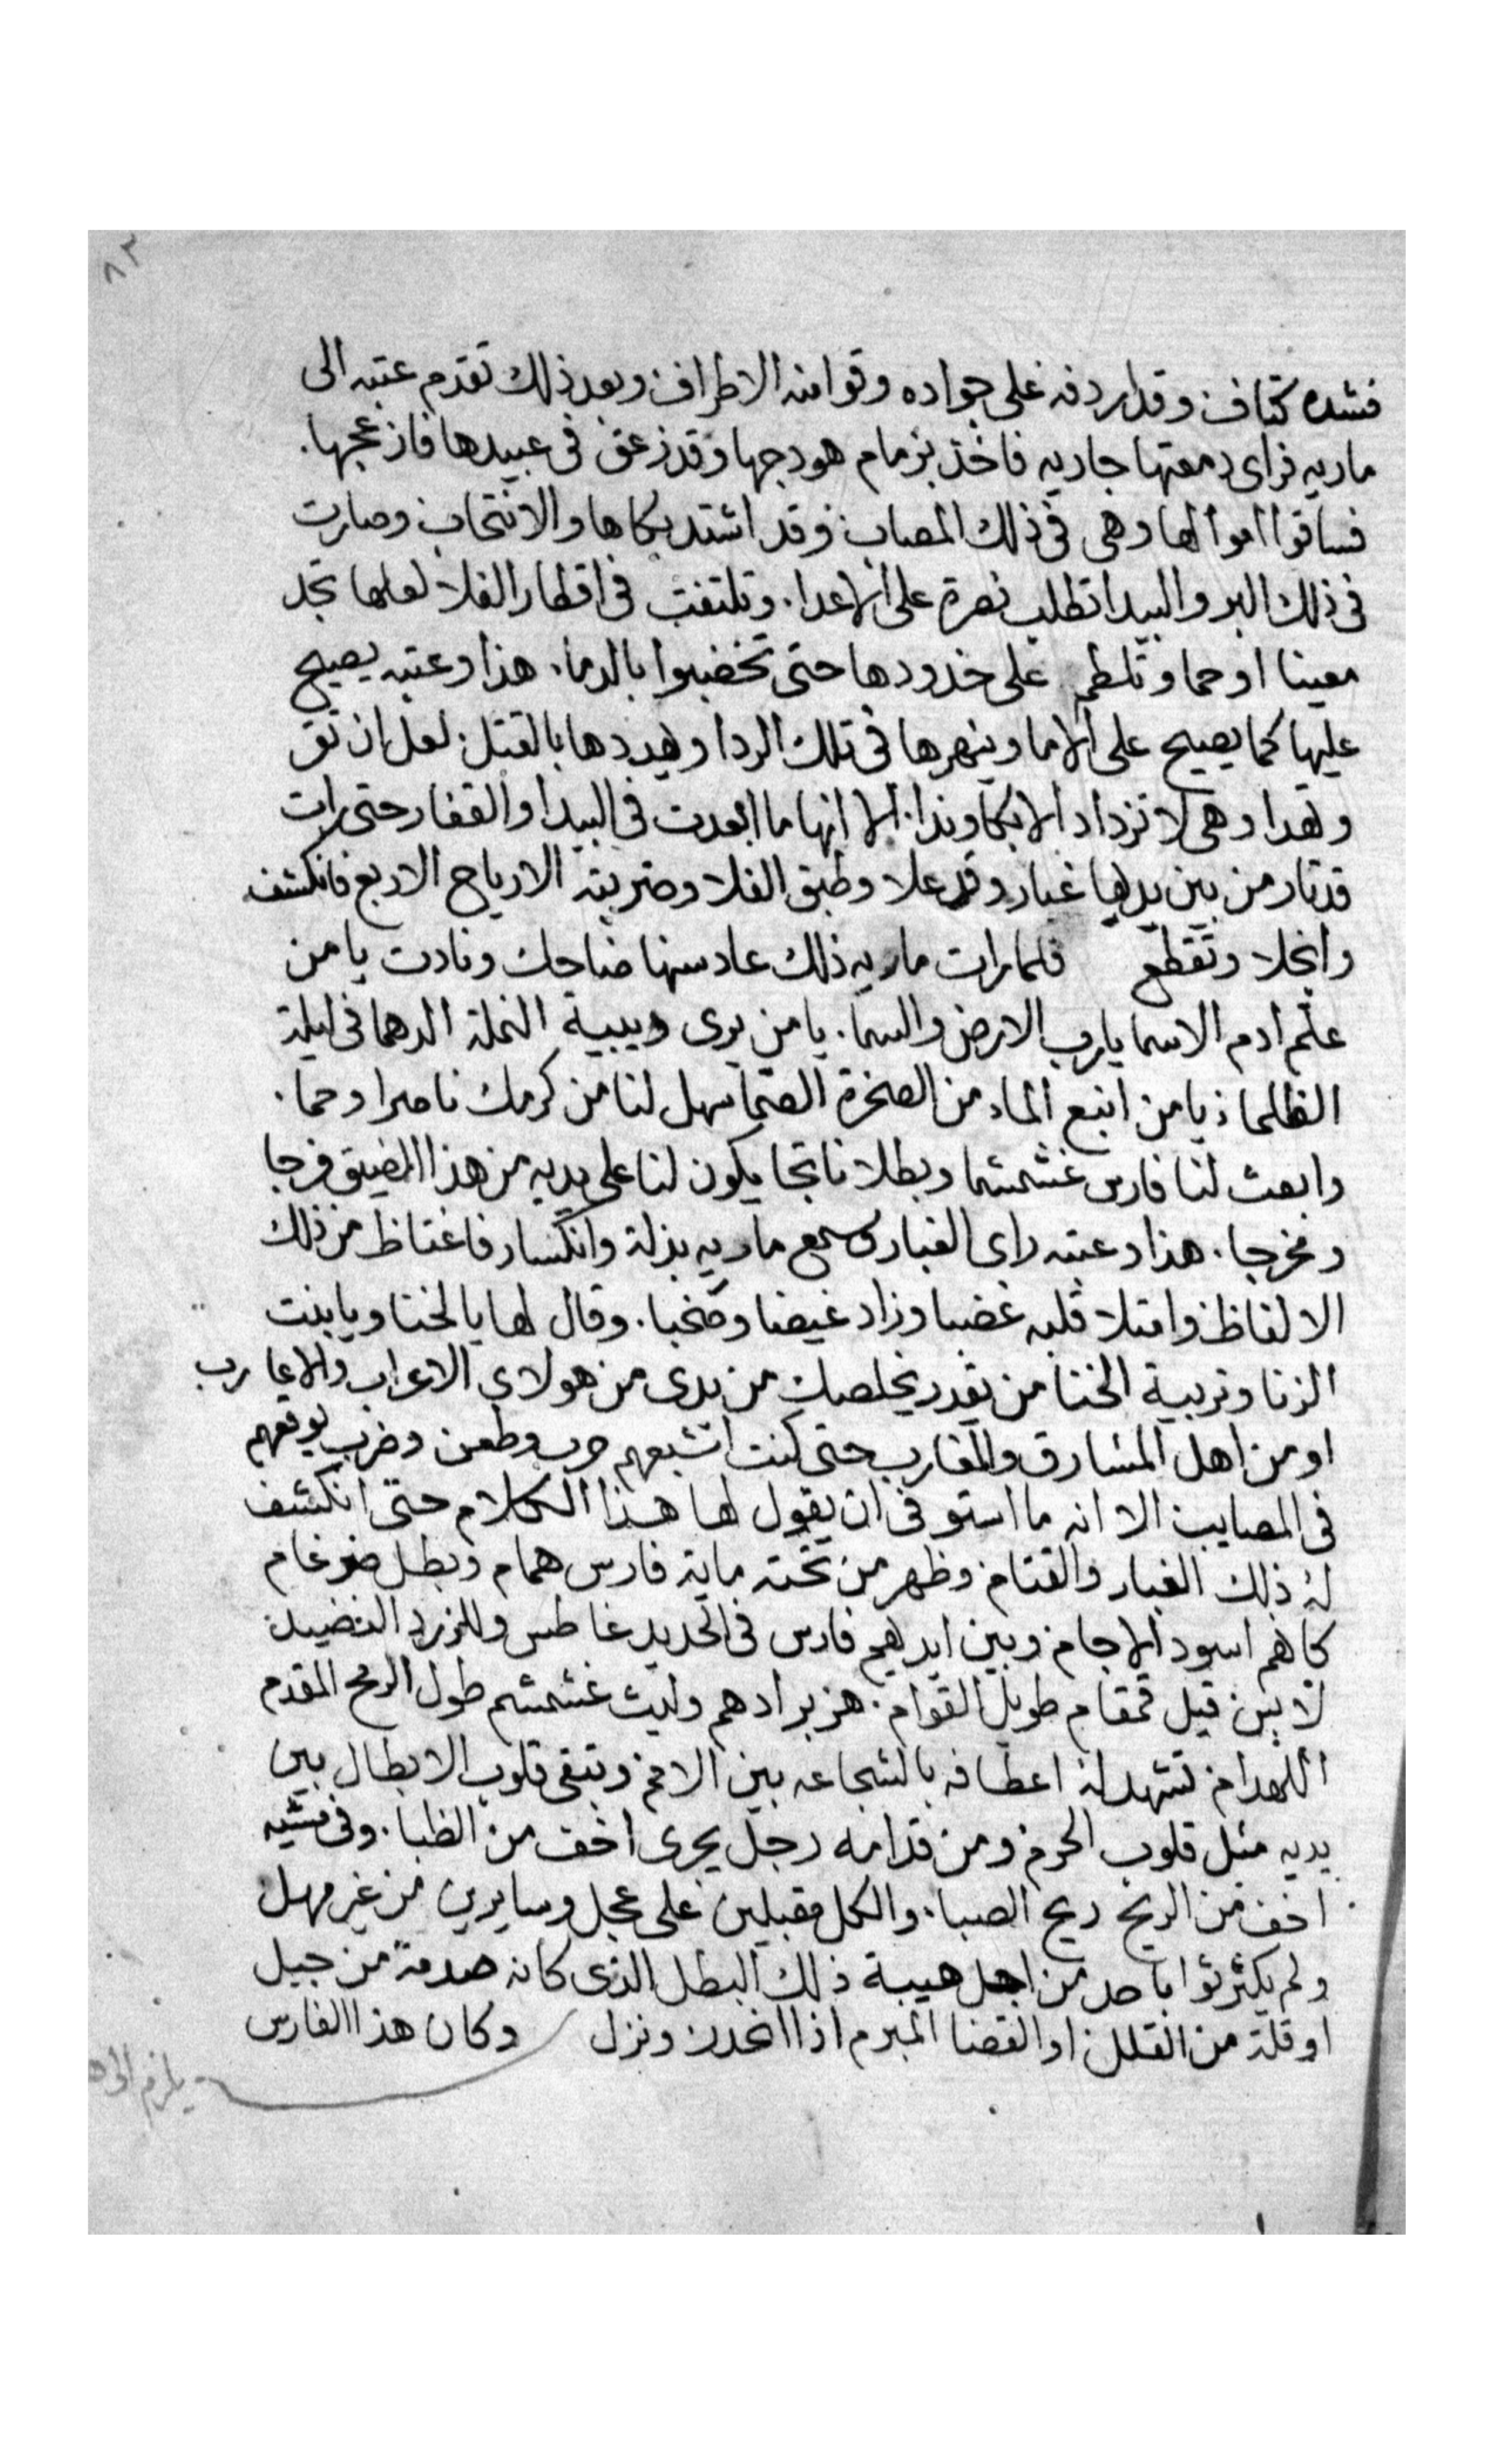 ٨٣
فشده كتاف وقد اردفه على جواده وقوا منه الاطراف وبعد ذلك تقدم عتبه الى
ماريه فراى دمعتها جاريه فاخذ بزمام هودجها وقد زعق فى عبيدها فازعجها.
فساقوا اموالها وهى فى ذلك المصاب وقد اشتد بكاها والانتحاب وصارت
فى ذلك البر والبيدا تطلب نصرة على الاعدا. وتلتفت فى اقطار الفلا لعلها تجد
معينا او حما وتلطم على خدودها حتى تخضبوا بالدما. هذا وعتبه يصيح
عليها كما يصيح على الاما وينهرها فى تلك الردا ويهددها بالقتل لعل ان تق
وتهدا وهى لا تزداد الا بكا وندا. الا انها ما ابعدت فى البيدا والقفار حتى رات
قد ثار من بين يديها غبار وقد علا وطبق الفلا وضربته الارياح الاربع فانكشف
وانجلا وتقطع فلما رات ماريه ذلك عاد سنها ضاحك ونادت يا من
علم ادم الاسما يا رب الارض والسما. يا من يرى دبيبة النملة الدهما فى ليلة
الظلما يا من انبع الماء من الصخرة الصما سهل لنا من كرمك ناصرا وحما.
وابعث لنا فارس غشمشما وبطلا ناتجا يكون لنا على يديه من هذا المضيق فرجا
ومخرجا. هذا وعتبه راى الغبار وسمع ماريه بذلة وانكسار فاغتاظ من ذلك
الالفاظ وامتلا قلبه غضبا وزاد غيضا وصخبا. وقال لها يا لخنا ويا بنت
الزنا وتربية الخنا من يقدر يخلصك من يدى من هولاى الاعراب والاعارب
او من اهل المشارق والمغارب حتى كنت اشبعهم حرب وطعن وضرب يوقعهم
فى المصايب الا انه ما استوفى ان يقول لها هذا الكلام حتى انكشف
له ذلك الغبار والقتام وظهر من تحته ماية فارس همام وبطل ضرغام
كانهم اسود الاجام وبين ايديهم فارس فى الحديد غاطس وللزرد النضيد
لابس فيل قمقام طويل القوام. هزبر ادهم وليث غشمشم طول الرمح المقدم
اللهدام تشهد له اعطافه بالشجاعه بين الامم وتبقى قلوب الابطال بين
يديه مثل قلوب الحرم ومن قدامه رجل يجرى اخف من الظبا. وفى مشيه
اخف من الريح ريح الصبا. والكل مقبلين على عجل وسايرين من غير مهل
ولم يكثرثوا باحد من اجل هيبة ذلك البطل الذى كانه صدمة من جبل
او قلة من القلل او القضا المبرم اذا انحدر ونزل وكان هذا الفارس